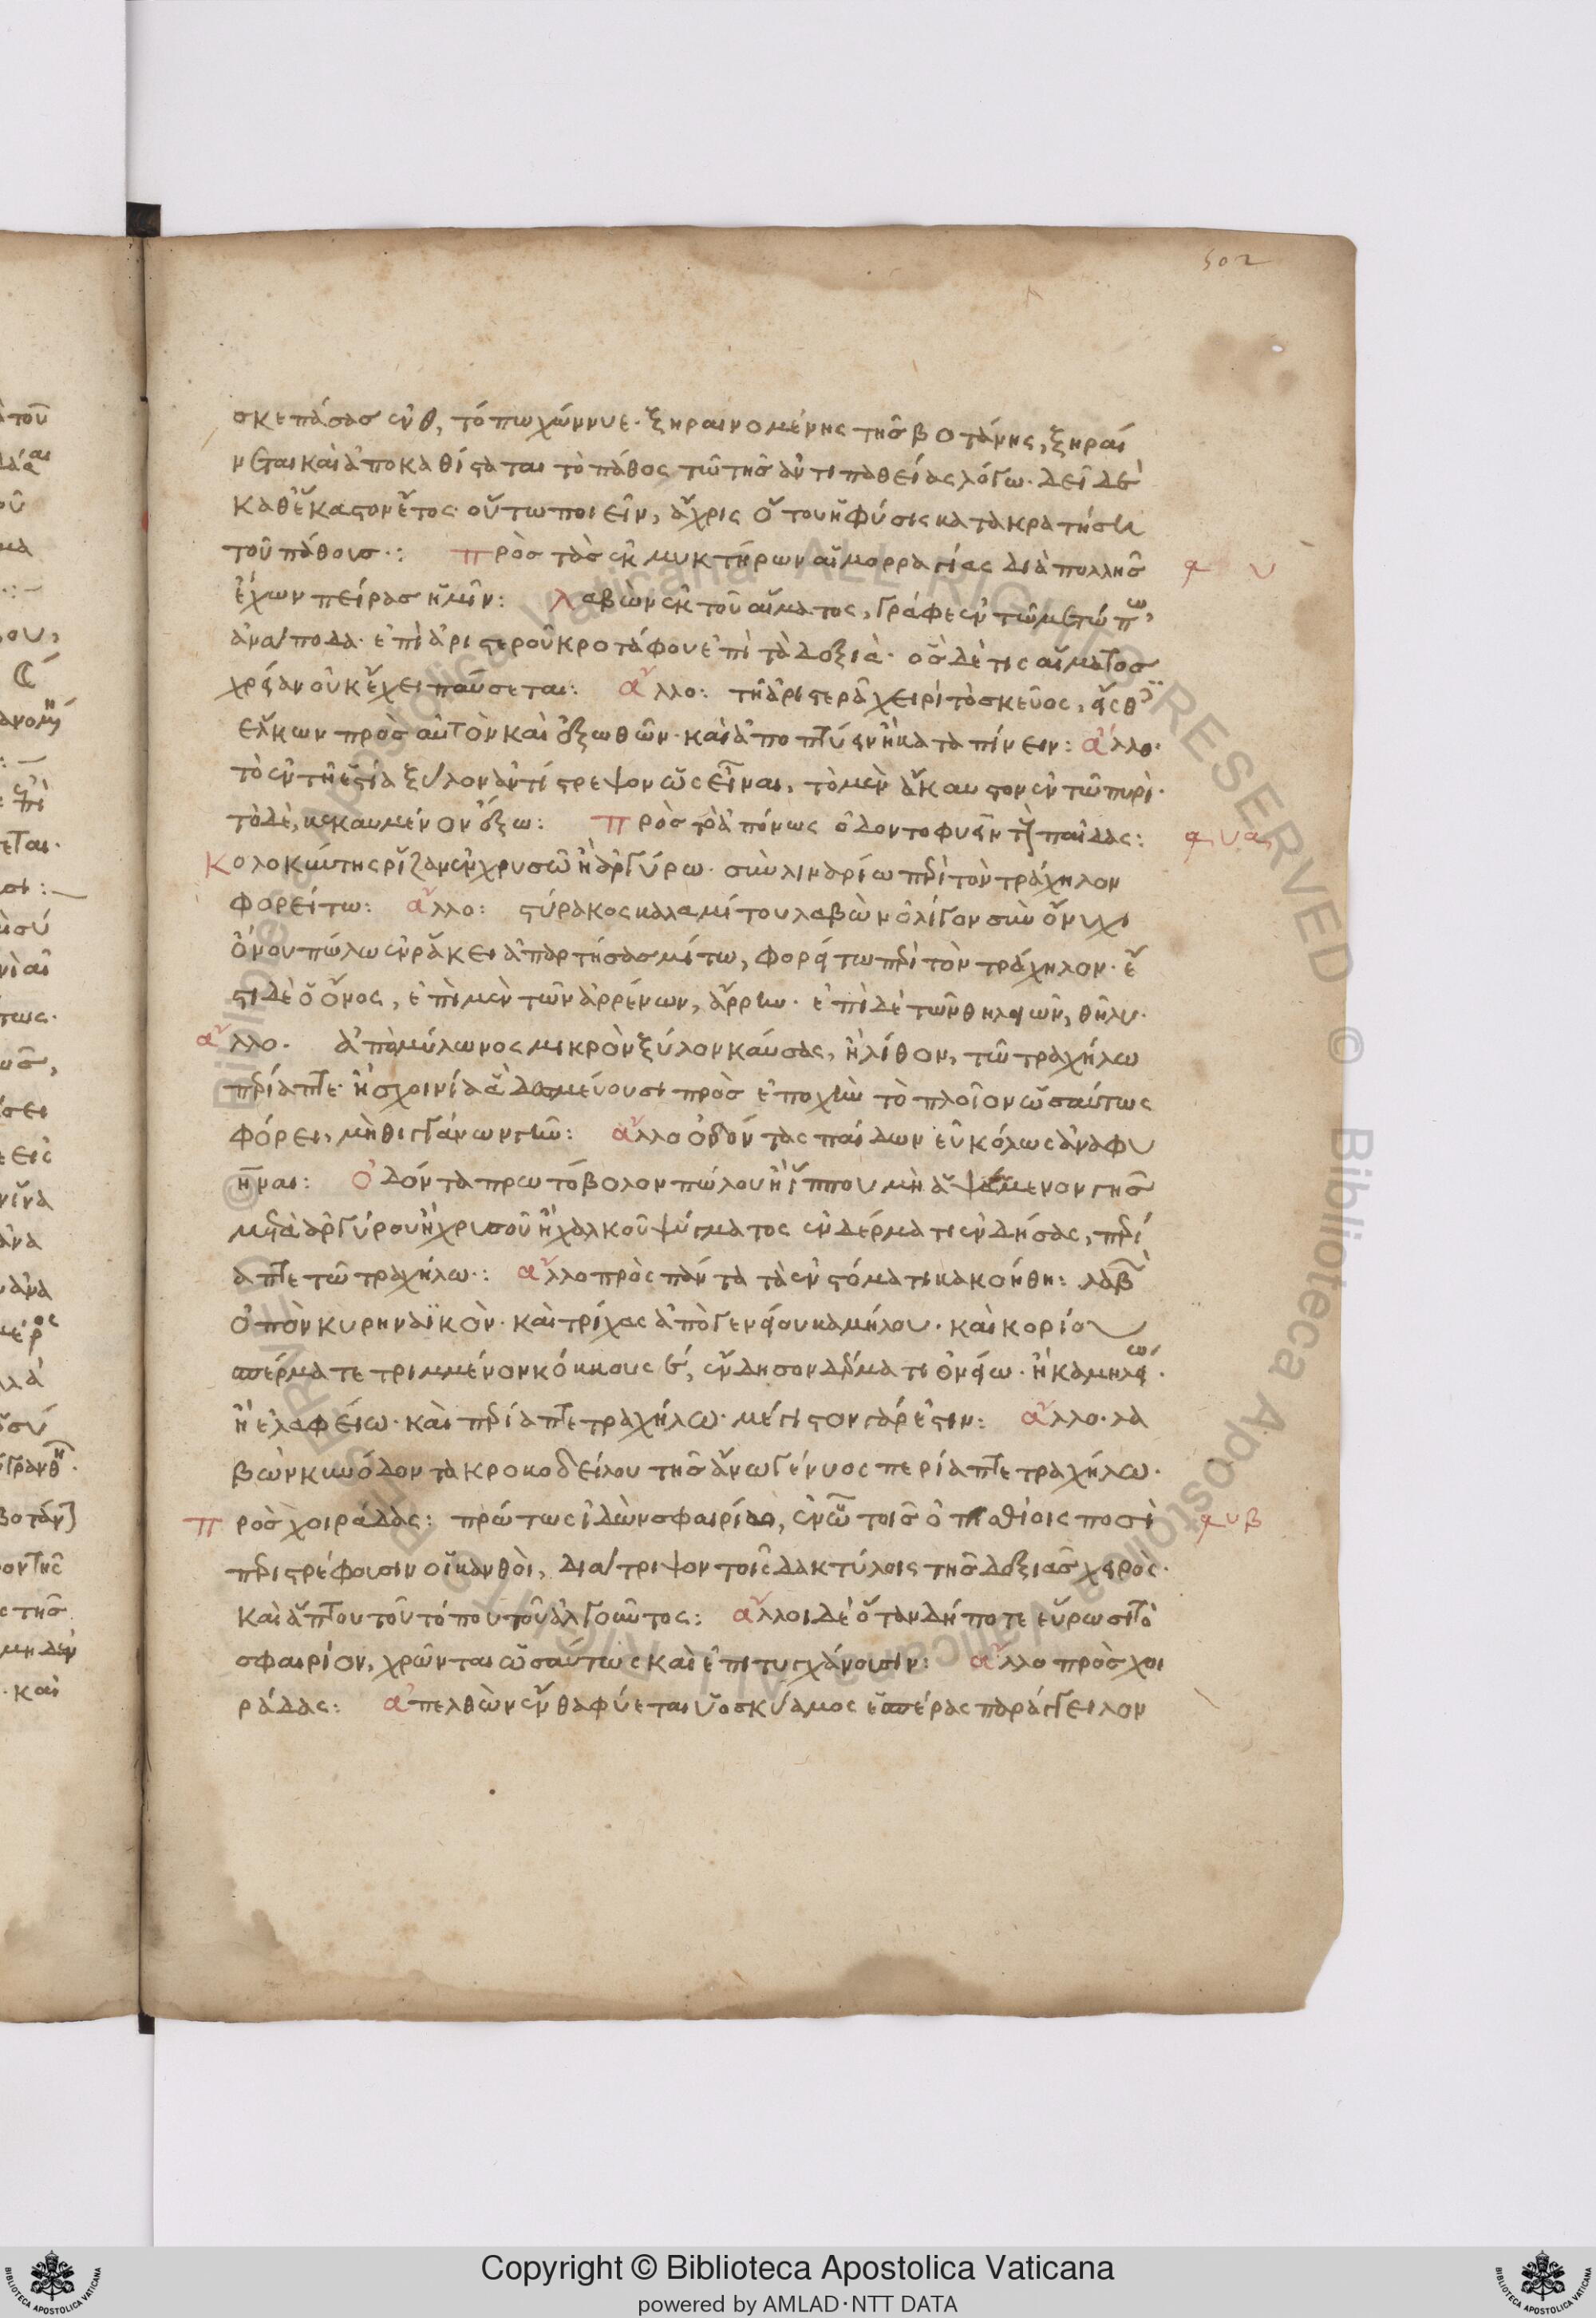 502
σκεπάσας ἐνθ, τόπω χώννυε· ξηραινομένης τῆς βοτάνης, ξηραί
νεται καὶ ἀποκαθίσταται τὸ πάθος τῶ τῆς ἀντιπαθείας λόγω· δεῖ δὲ
καθ' ἕκαστον ἔτος οὕτω ποιεῖν, ἄχρις ὅτου ἡ φύσις κατακρατήση
τοῦ πάθους·: πρὸς τὰς ἐκ μυκτήρων αἱμορραγίας διὰ πολλῆς φ υ
ἔχων πείρας ἡμῖν: λαβὼν ἐκ τοῦ αἵματος, γράφε ἐν τῶ μετώπω,
ἀνάποδα· ἐπὶ ἀριστεροῦ κροτάφου ἐπὶ τὰ δεξιὰ· ὃς δέ τις αἵματος
χρείαν οὐκ ἔχει παύσεται: ἄλλο: τῆ ἀριστερᾶ χειρὶ τὸ σκεῦος,
ἕλκων πρὸς αὐτὸν καὶ ἐξωθῶν· καὶ ἀποπτύειν ἢ καταπίνειν: ἄλλο·
τὸ ἐν τῆ ἑστία ξύλον ἀντίστρεψον ὡς εἶναι, τὸ μὲν ἄκαυστον ἐν τῶ πυρὶ·
τὸ δὲ, κεκαυμένον ἔξω: πρὸς τὸ ἀπόνως ὀδοντοφυεῖν τοὺς παῖδας: φυα
Κολοκύντης ῥίζαν ἐν χρυσῶ ἢ ἀργύρω· σὺν λιναρίω περὶ τὸν τράχηλον
φορείτω: ἄλλο: στύρακος καλαμίτου λαβὼν ὀλίγον σὺν ὄνυχι
ὄνου πώλω ἐν ῥάκει ἀπαρτήσας μίτω, φορείτω περὶ τὸν τράχηλον· ἔ
στι δὲ ὁ ὄνος, ἐπὶ μὲν τῶν ἀρρένων, ἄρρην· ἐπὶ δὲ τῶν θηλειῶν, θῆλυ·
ἄλλο· ἀπὸ μύλωνος μικρὸν ξύλον καύσας, ἢ λίθον, τῶ τραχήλω
περίαπτε· ἢ σχοινία ἃ δεσμεύουσι πρὸς ἐποχὴν τὸ πλοῖον ὡσαύτως
φόρει, μὴ θιγγάνων γῆν: ἄλλο ὀδόντας παίδων εὐκόλως ἀναφυ
ῆναι: Ὀδόντα πρωτόβολον πώλου ἢ ἵππου μὴ ἁψάμενον γῆς
μετὰ ἀργύρου ἢ χρυσοῦ ἢ χαλκοῦ ψύγματος ἐν δέρματι ἐνδήσας, περί
απτε τῶ τραχήλω·: ἄλλο πρὸς πάντα τὰ ἐν στόματι κακοήθη: λαβ
ὀπὸν κυρηναϊκὸν· καὶ τρίχας ἀπὸ γενείου καμήλου· καὶ κορίου
σπέρμα τετριμμένον κόκκους ϛ, ἔνδησον δέρματι ὀνείω· ἢ καμηλείω·
ἢ ἐλαφείω· καὶ περίαπτε τραχήλω· μέγιστον γάρ ἐστιν: ἄλλο· λα
βὼν κυνόδοντα κροκοδείλου τῆς ἄνω γένυος περίαπτε τραχήλω·
Πρὸς χοιράδας: πρώτως ἰδὼν σφαιρίον, ἐν ὧ τοῖς ὀπισθίοις ποσὶ φυβ
περιστρέφουσιν οἱ κανθοὶ, διάτριψον τοῖς δακτύλοις τῆς δεξιᾶς χειρὸς·
καὶ ἅπτου τοῦ τόπου τοῦ ἀλγοῦντος: ἄλλοι δὲ ὅταν δήποτε εὕρωσι τὸ
σφαιρίον, χρῶνται ὡσαύτως καὶ ἐπιτυγχάνουσιν: ἄλλο πρὸς χοι
ράδας: ἀπελθὼν ἔνθα φύεται ὑοσκύαμος ἑσπέρας παράγγειλον
Copyright © Biblioteca Apostolica Vaticana
powered by AMLAD·NTT DATA